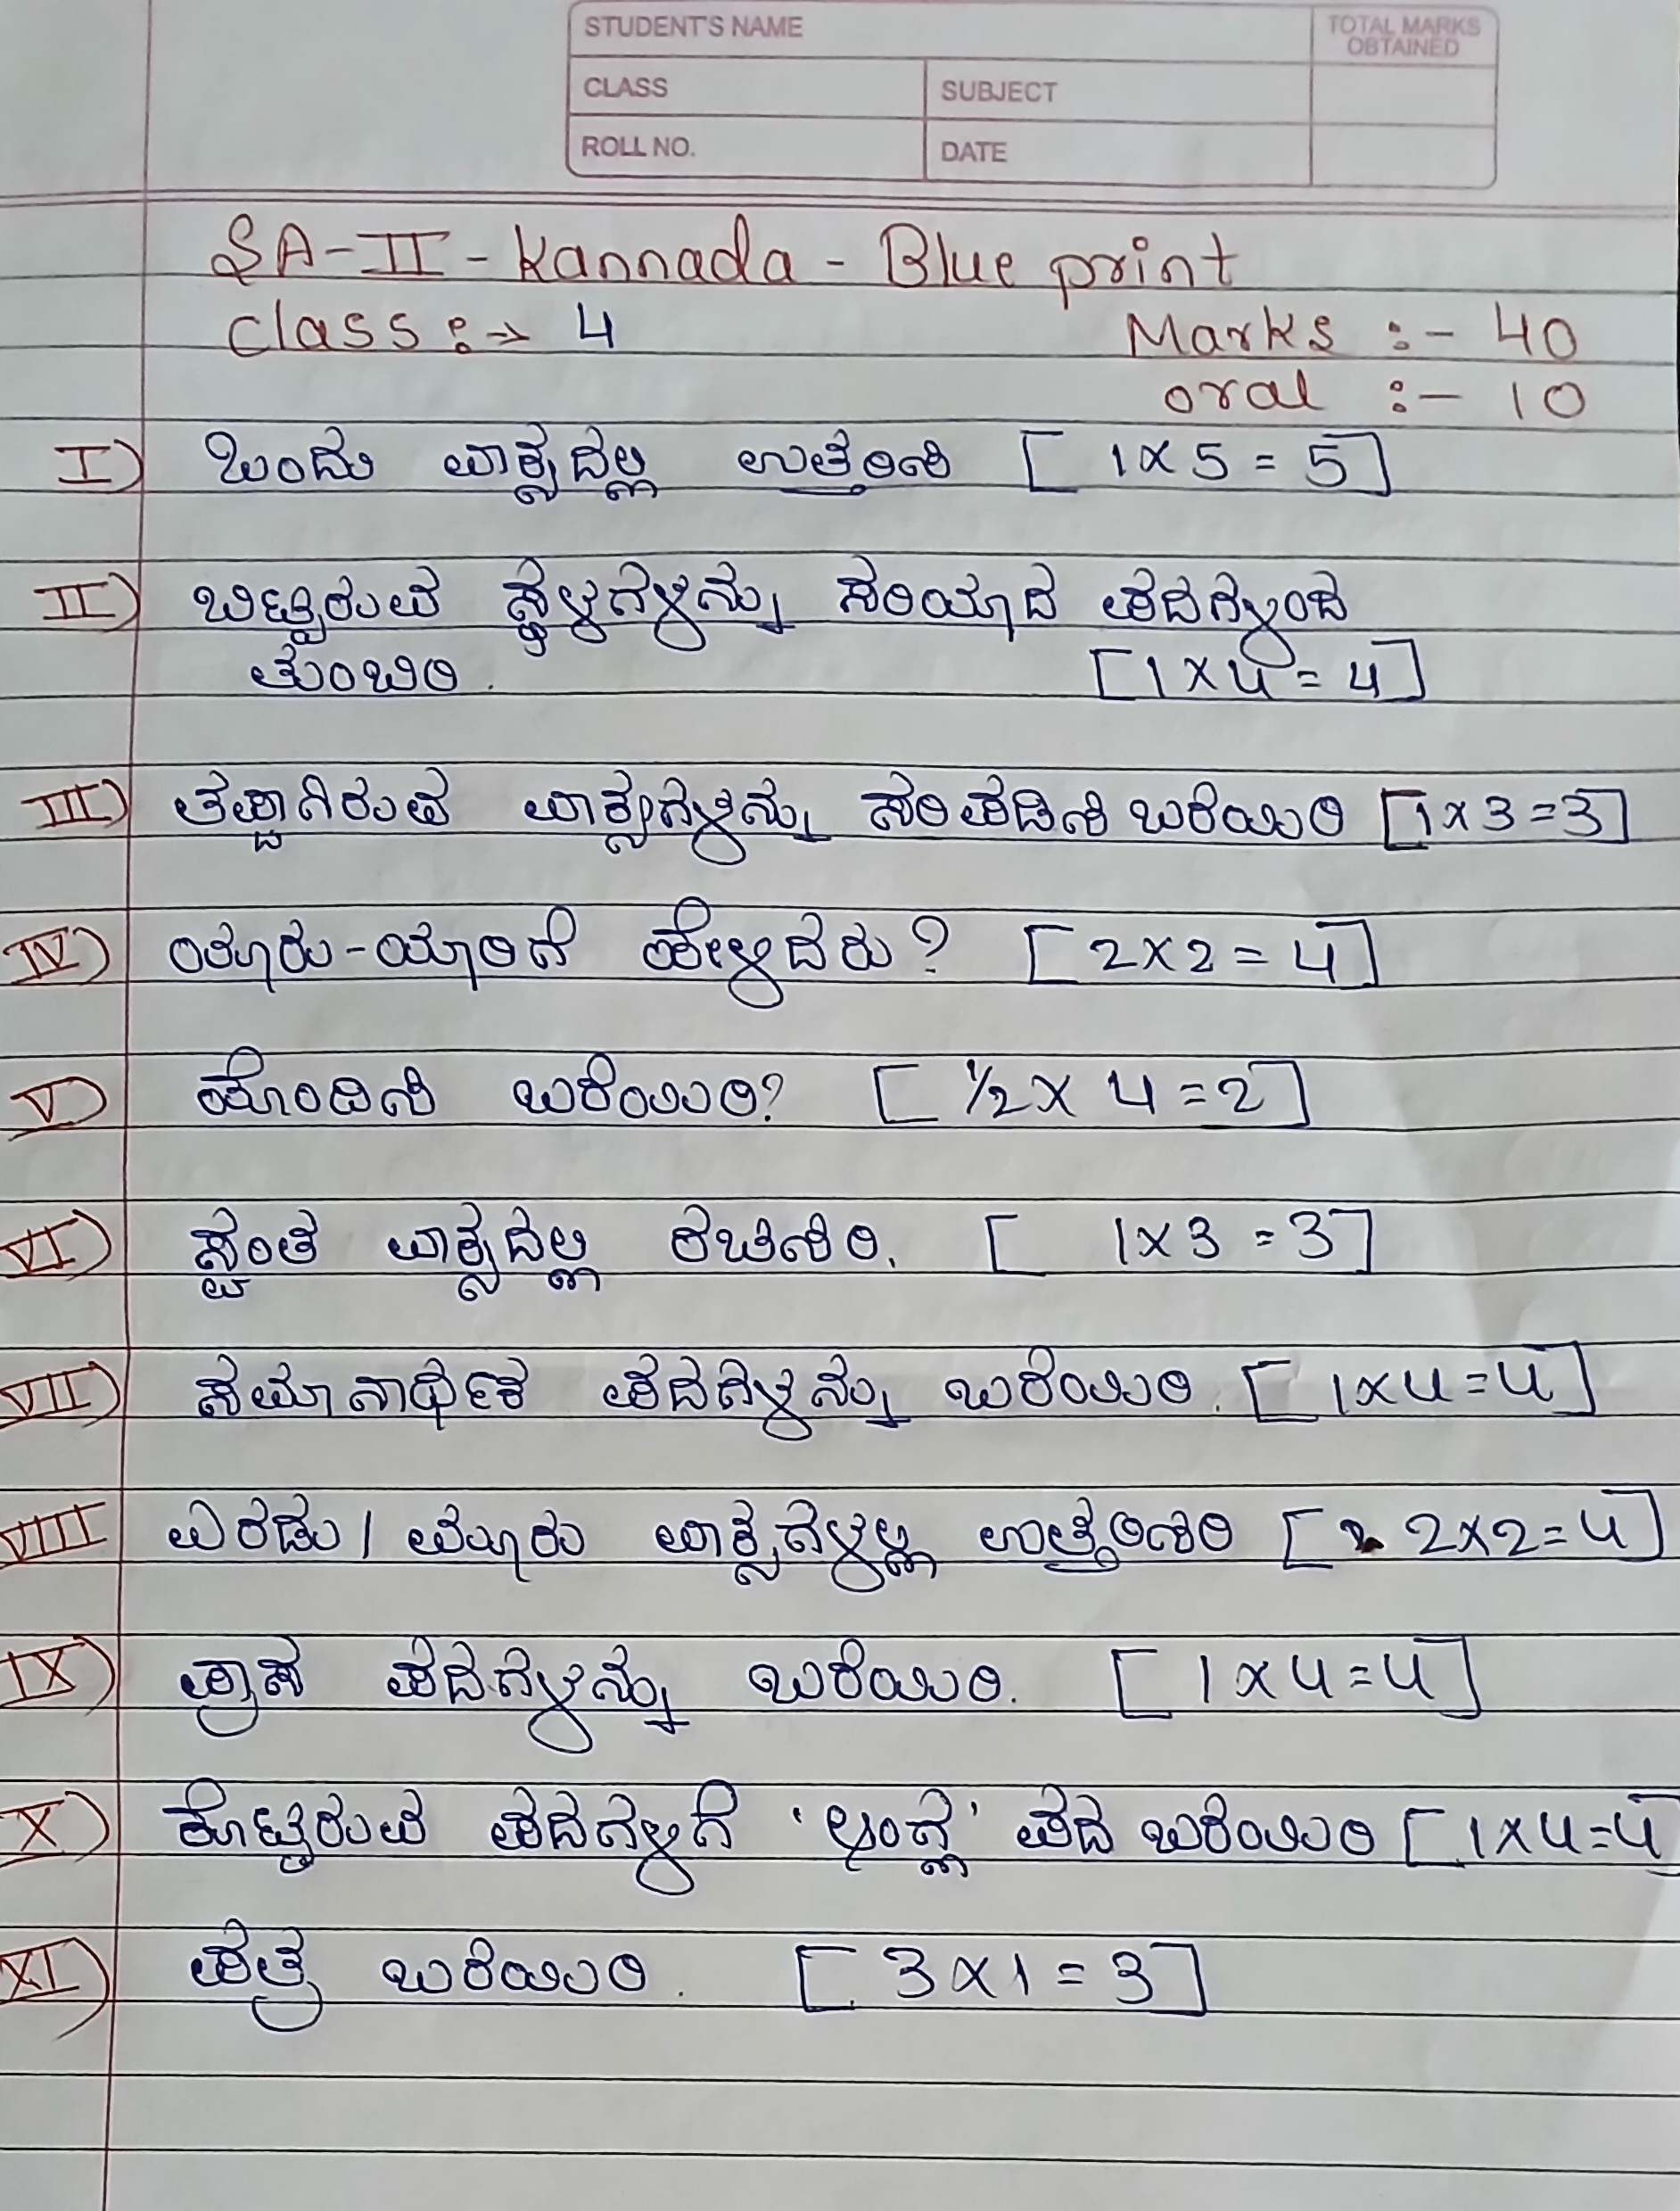 STUDENT'S NAME
TOTAL MARKS OBTAINED
CLASS
SUBJECT
ROLL NO.
DATE
SA-II - Kannada - Blue print
Class :→ 4 Marks :- 40
oral :- 10
I) ಒಂದು ವಾಕ್ಯದಲ್ಲಿ ಉತ್ತರಿಸಿ [ 1 x 5 = 5 ]
II) ಬಿಟ್ಟಿರುವ ಸ್ಥಳಗಳನ್ನು ಸರಿಯಾದ ಪದಗಳಿಂದ
ತುಂಬಿರಿ. [ 1 x 4 = 4 ]
III) ತಪ್ಪಾಗಿರುವ ವಾಕ್ಯಗಳನ್ನು ಸರಿಪಡಿಸಿ ಬರೆಯಿರಿ [ 1 x 3 = 3 ]
IV) ಯಾರು - ಯಾರಿಗೆ ಹೇಳಿದರು? [ 2 x 2 = 4 ]
V) ಹೊಂದಿಸಿ ಬರೆಯಿರಿ? [ 1/2 x 4 = 2 ]
VI) ಸ್ವಂತ ವಾಕ್ಯದಲ್ಲಿ ರಚಿಸಿರಿ. [ 1 x 3 = 3 ]
VII) ಸಮಾನಾರ್ಥಕ ಪದಗಳನ್ನು ಬರೆಯಿರಿ. [ 1 x 4 = 4 ]
VIII ಎರಡು / ಮೂರು ವಾಕ್ಯಗಳಲ್ಲಿ ಉತ್ತರಿಸಿರಿ [ 2 x 2 = 4 ]
IX) ಪ್ರಾಸ ಪದಗಳನ್ನು ಬರೆಯಿರಿ. [ 1 x 4 = 4 ]
X) ಕೊಟ್ಟಿರುವ ಪದಗಳಿಗೆ 'ಆಂಗ್ಲ' ಪದ ಬರೆಯಿರಿ [ 1 x 4 = 4
XI) ಪತ್ರ ಬರೆಯಿರಿ. [ 3 x 1 = 3 ]